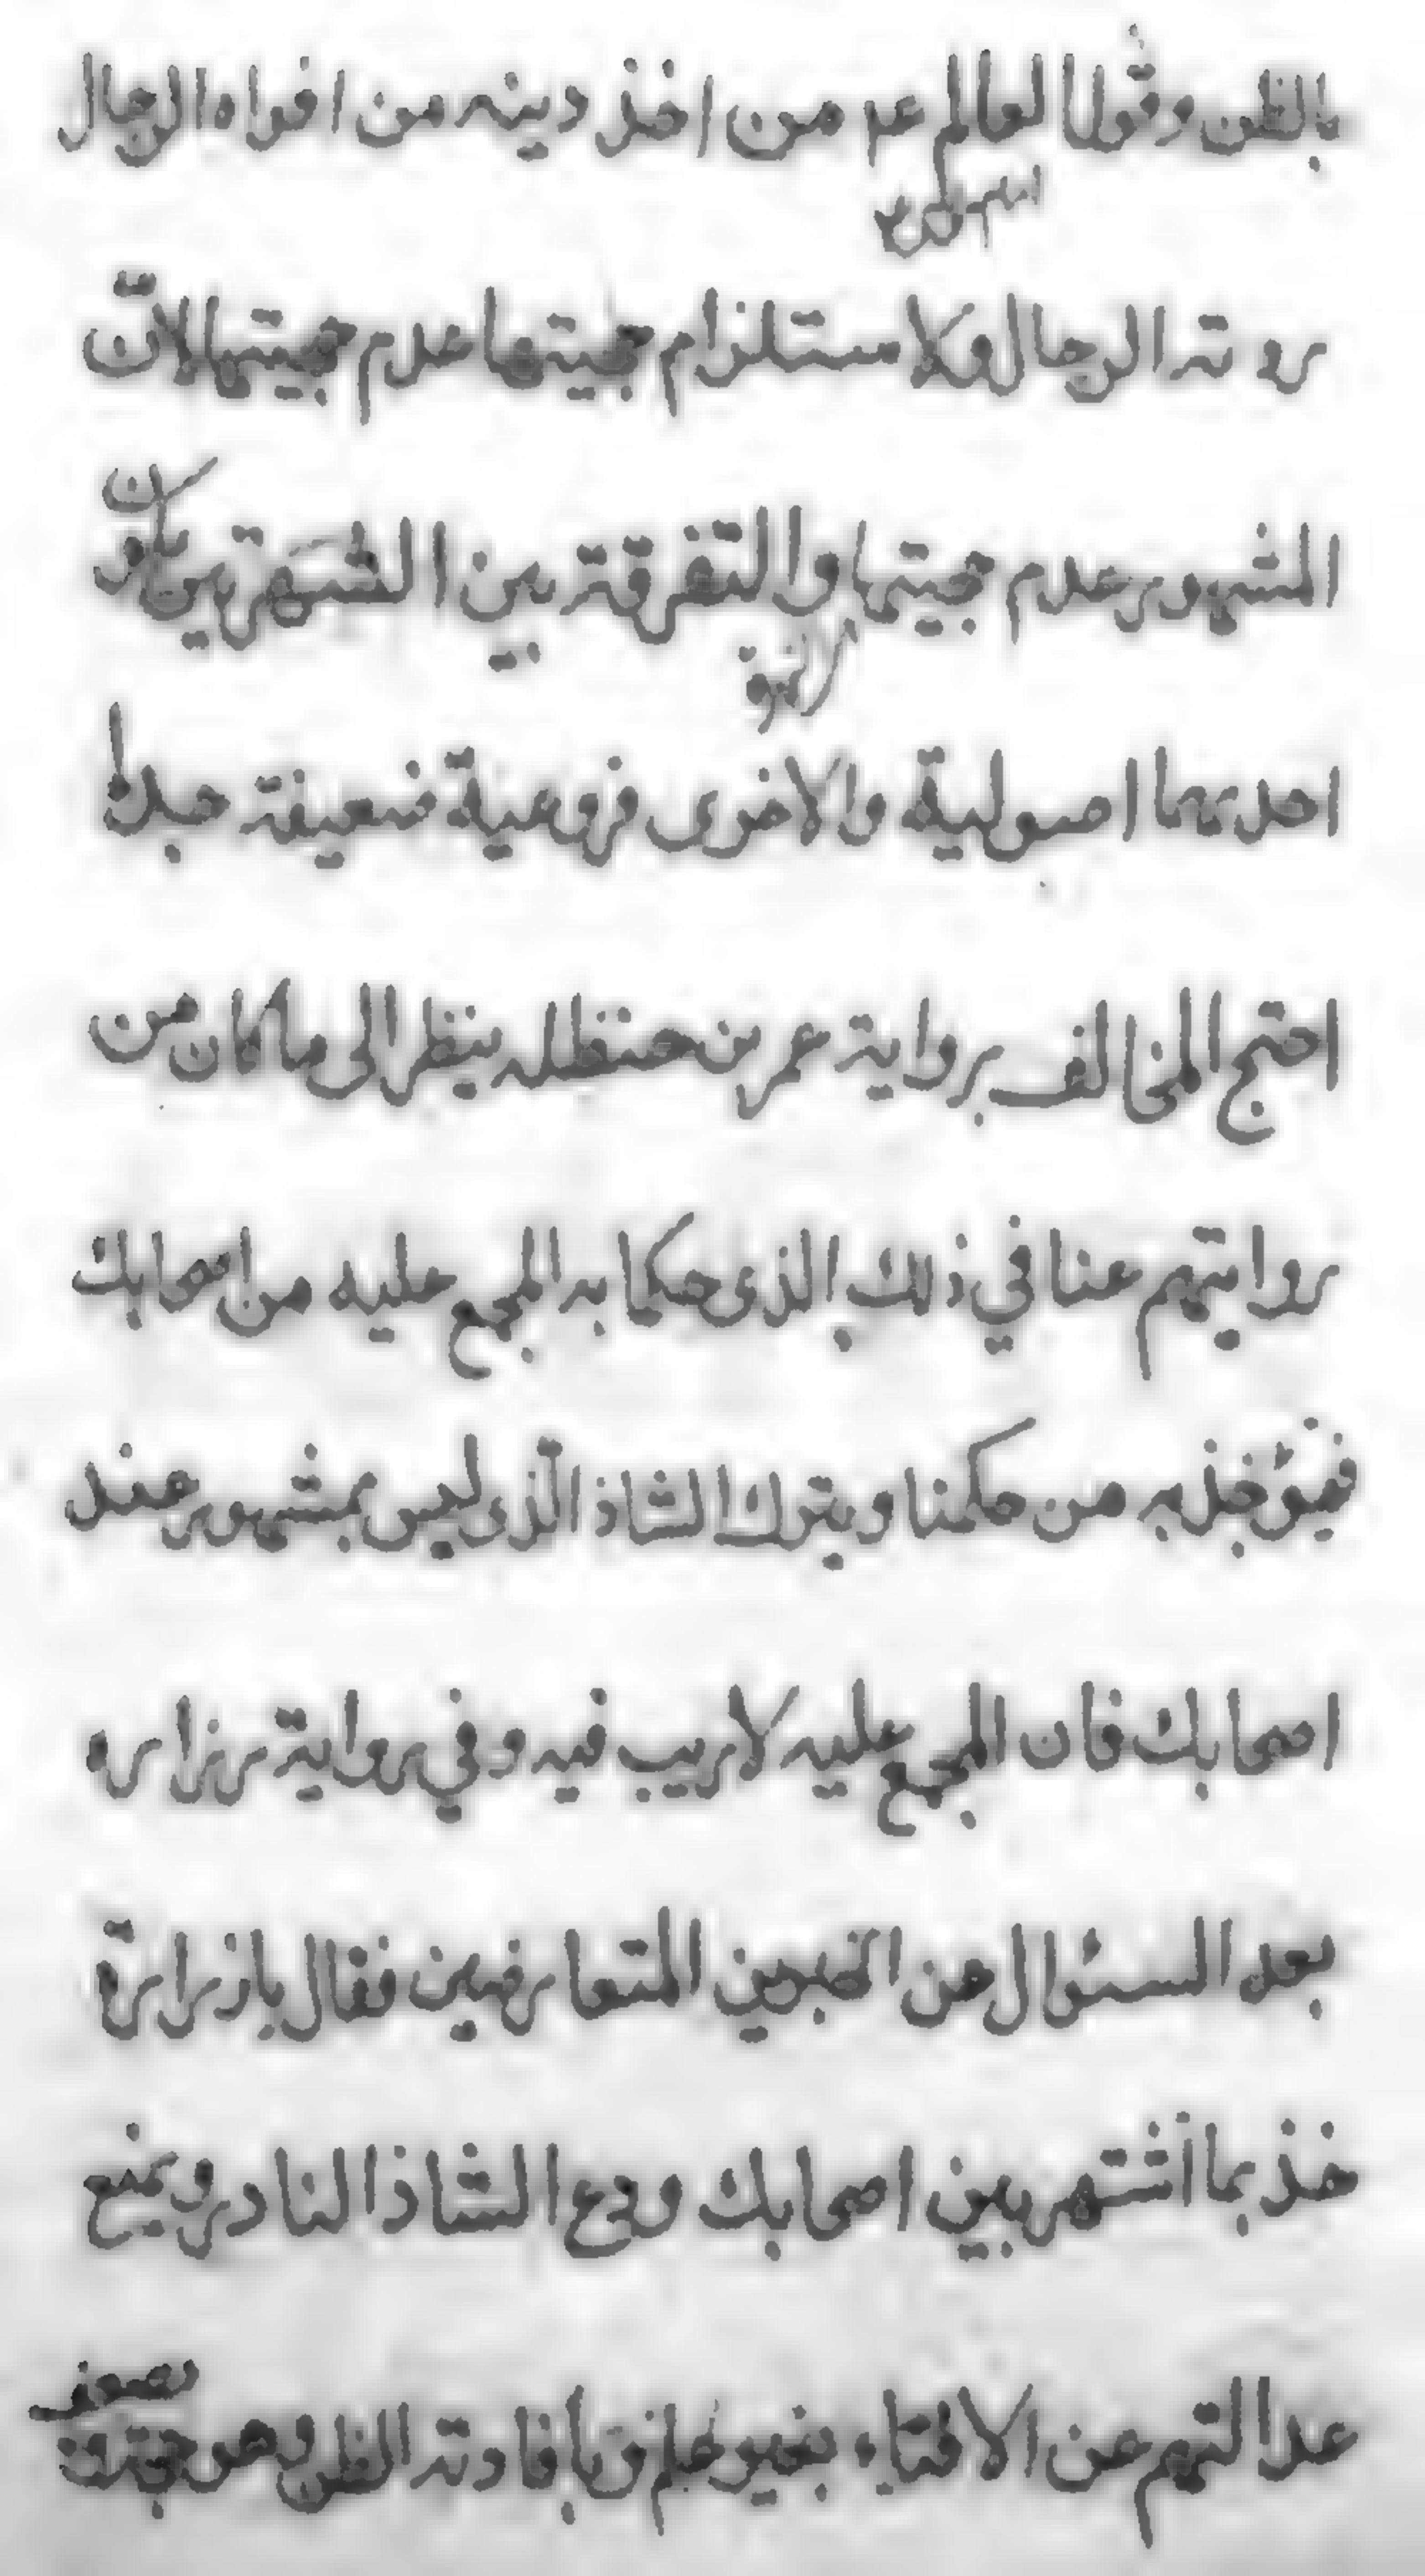 بالظن وقول العالم عم من اخذ دينه من افواه الرجال
روته الرجال ولاستلزام حجيتها عدم حجيتها لانّ
المشهور عدم حجيتها والتفرقة بين الشهرتين بكون
احديهما اصولية والاخرى فروعية ضعيفة جدا
احتج المخالف برواية عمر بن حنظله ينظر الى ما كان من
روايتهم عنا في ذلك الذى حكما به المجمع عليه من اصحابك
فيؤخذ به من حكمنا ويترك الشاذ الّذى ليس بمشهور عند
اصحابك فان المجمع عليه لا ريب فيه وفي رواية زراره
بعد السئوال عن الخبرين المتعارضين فقال يا زرارة
خذ بما اشتهر بين اصحابك ودع الشاذ النادر وبمنع
عدالتهم عن الافتاء بغير علم وبافادته الظن وهو حجة